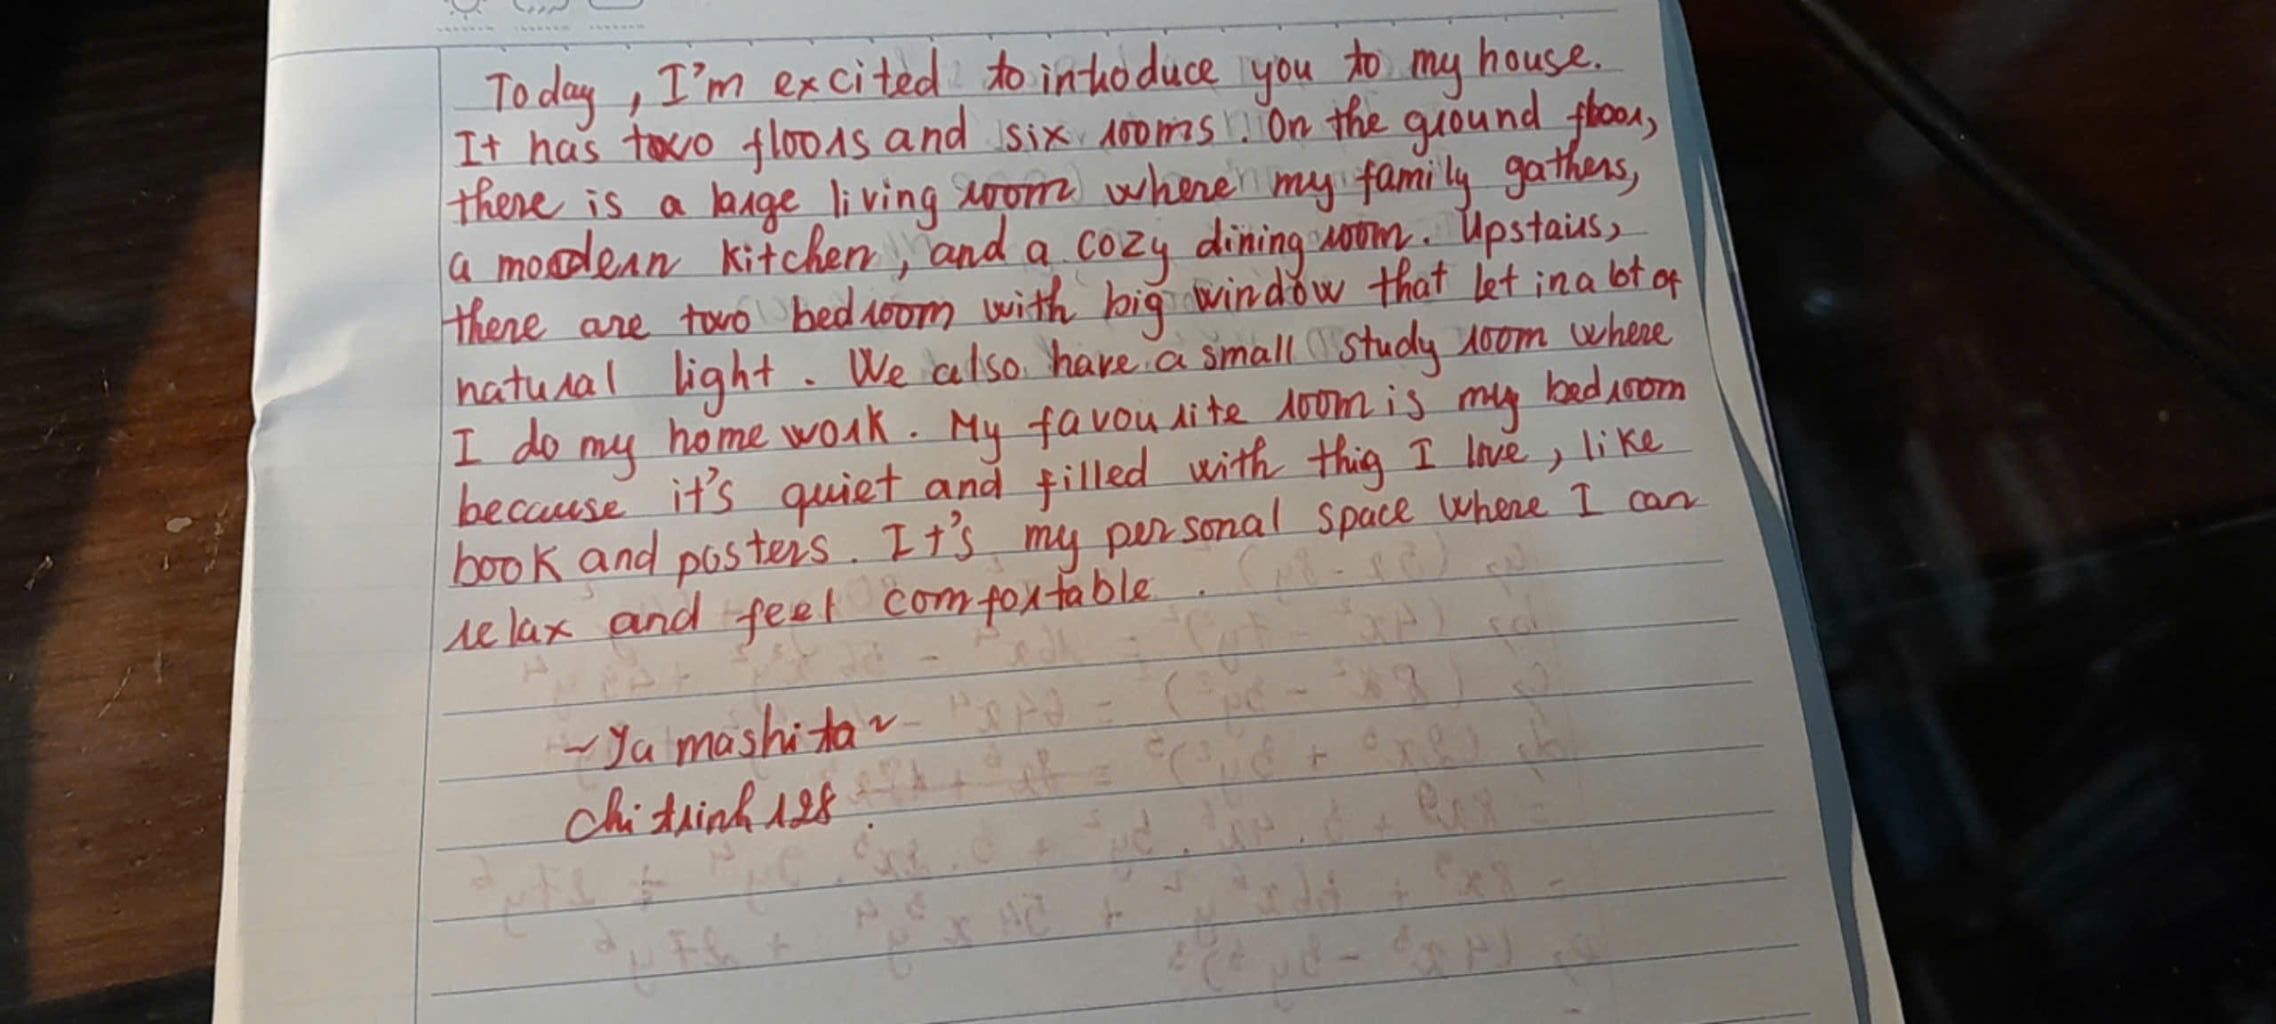 Today, I'm excited to introduce you to my house.
It has two floors and six rooms. On the ground floor,
there is a large living room where my family gathers,
a modern kitchen, and a cozy dining room. Upstairs,
there are two bedroom with big window that let in a lot of
natural light. We also have a small study room where
I do my homework. My favourite room is my bedroom
because it's quiet and filled with thig I love, like
book and posters. It's my personal space where I can
relax and feel comfortable.
~Yamashita~
Chitrinh128.